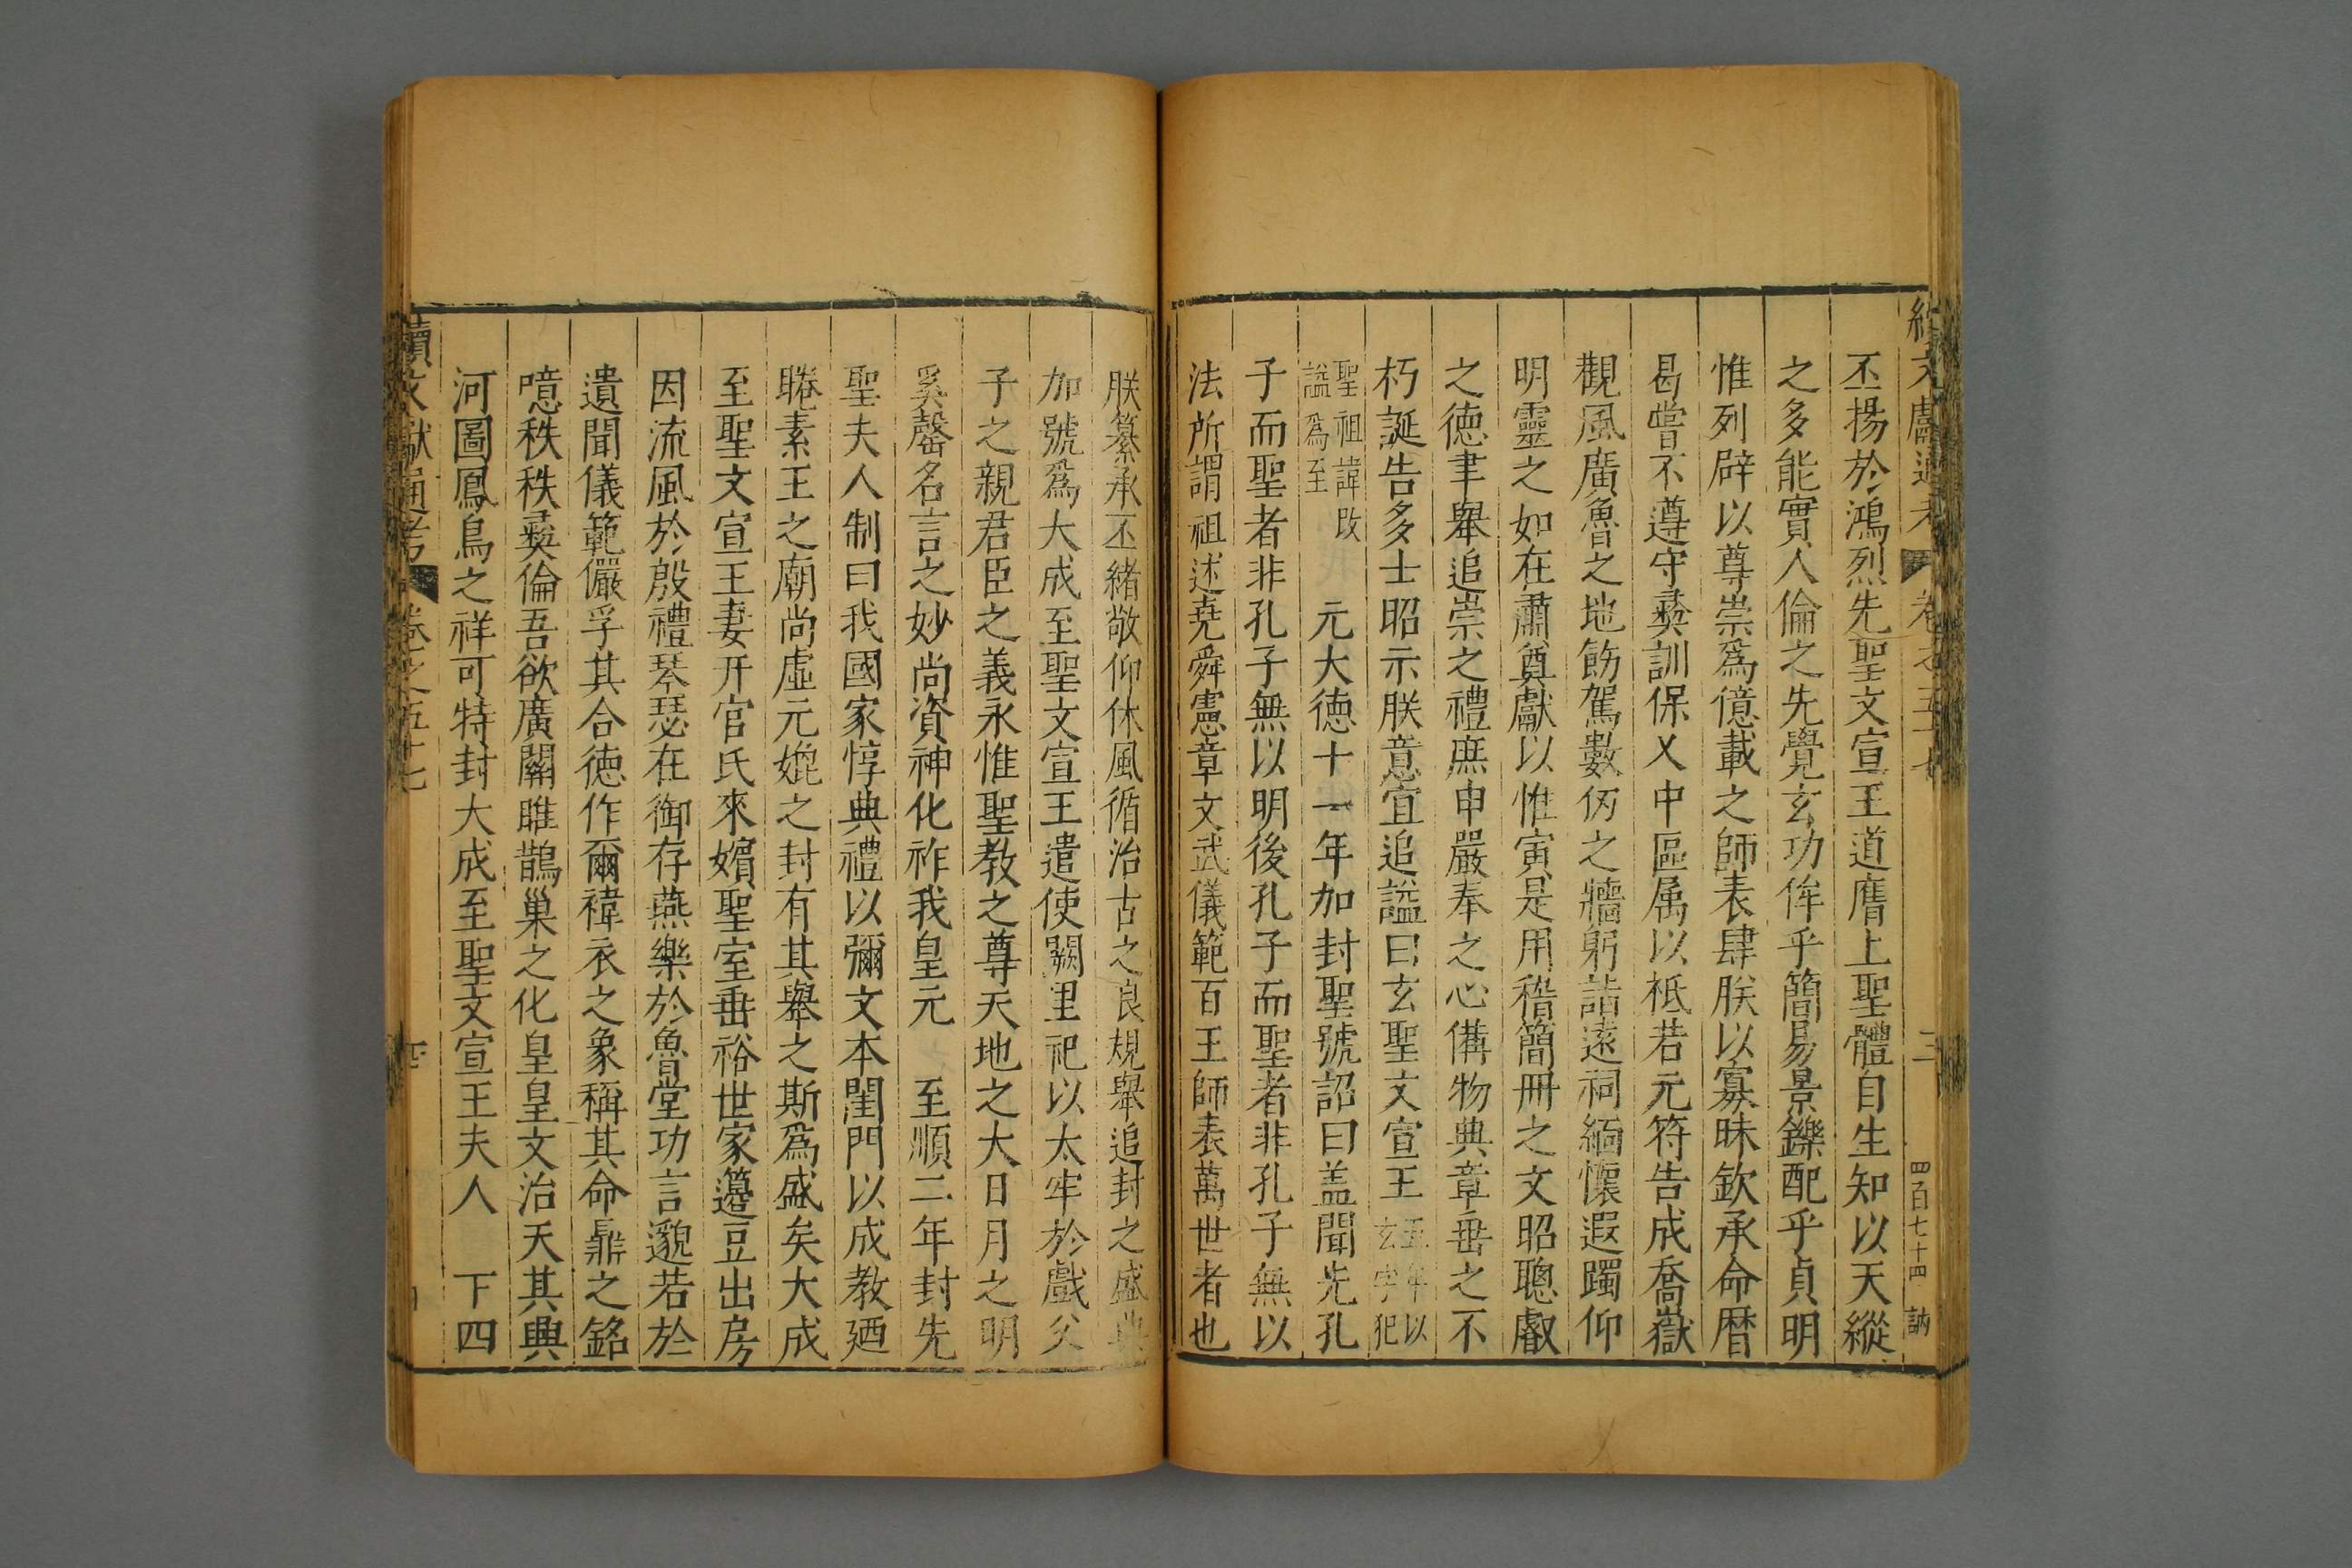 續文獻通考 卷之五十七 三 四百七十四
丕揚於鴻烈先聖文宣王道膺上聖體自生知以天縱
之多能實人倫之先覺玄功侔乎簡易景鑠配乎貞明
惟列辟以尊崇爲億載之師表肆朕以寡昧欽承命曆
曷嘗不遵守彜訓保乂中區属以祗若元符告成喬嶽
觀風廣魯之地飭駕數仞之牆躬詣遠祠緬懷遐躅仰
明靈之如在肅奠獻以惟寅是用稽簡冊之文昭聰叡
之德聿舉追崇之禮庶申嚴奉之心備物典章垂之不
朽誕告多士昭示朕意宜追謚曰玄聖文宣王五年以玄字犯
聖祖諱改謚爲至 元大德十一年加封聖號詔曰盖聞先孔
子而聖者非孔子無以明後孔子而聖者非孔子無以
法所謂祖述堯舜憲章文武儀範百王師表萬世者也
朕纂承丕緒敬仰休風循治古之良規舉追封之盛典
加號爲大成至聖文宣王遣使闕里祀以太牢於戲父
子之親君臣之義永惟聖教之尊天地之大日月之明
奚罄名言之妙尚資神化祚我皇元 至順二年封先
聖夫人制曰我國家惇典禮以彌文本閨門以成教廼
睠素王之廟尚虛元媲之封有其舉之斯爲盛矣大成
至聖文宣王妻幵官氏來嬪聖室垂裕世家籩豆出房
因流風於殷禮琴瑟在御存燕樂於魯堂功言邈若於
遺聞儀範儼乎其合德作爾褘衣之象稱其命鼎之銘
噫秩秩彜倫吾欲廣關雎鵲巢之化皇皇文治天其興
河圖鳳鳥之祥可特封大成至聖文宣王夫人 下四
續文獻通考 卷之五十七 四